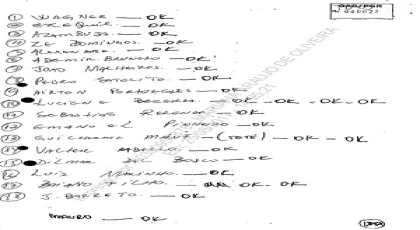 ① WAGNER — OK
② EZEQUIEL — OK
③ AZAMBUJA. — OK
④ ZÉ DOMINGOS. — OK
⑤ ALEXANDRE. — OK
⑥ ADEMIR BRUNHO — OK
⑦ JOÃO MALHEIROS. — OK
⑧ PEDRO SATÉLITE. — OK
⑨ AIRTON PORTUGUÊS — OK
⑩ LUCIANE BEZERRA. — OK - OK - OK - OK
⑪ SEBASTIÃO REZENDE — OK
⑫ EMANUEL PINHEIRO — OK
⑬ GUILHERME MALUF — (TETÉ) — OK - OK
⑭ VALTER RABELLO. — OK
⑮ DILMAR DAL BOSCO — OK
⑯ LUIZ MARINHO. — OK
⑰ BAIANO FILHO. — OK - OK
⑱ J. BARRETO. — OK
MAURO — OK